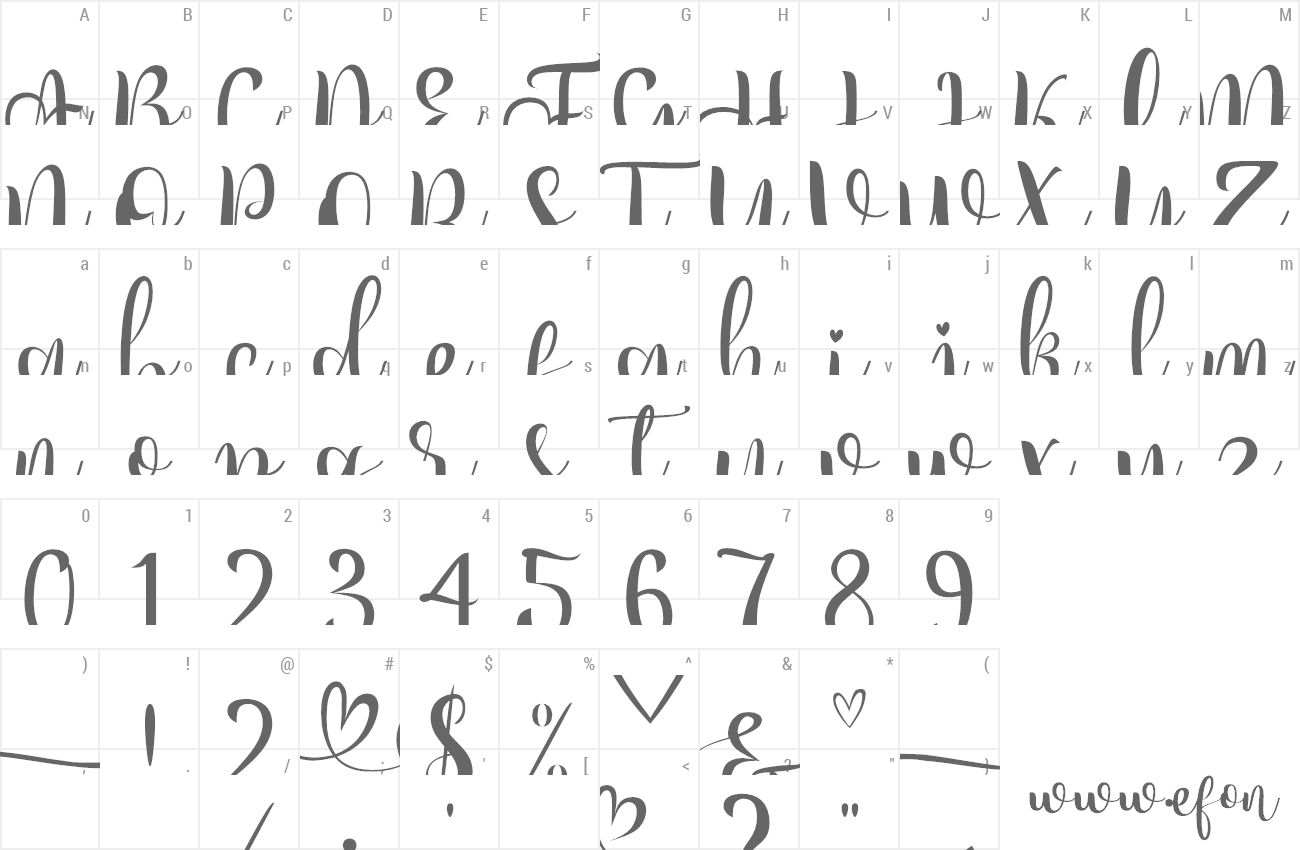 A B C D E F G H I J K L M
A B C D E F G H I J K L M
N O P Q R S T U V W X Y Z
N O P Q R S T U V W X Y Z
a b c d e f g h i j k l m
a b c d e f g h i j k l m
n o p q r s t u v w x y z
n o p q r s t u v w x y z
0 1 2 3 4 5 6 7 8 9
0 1 2 3 4 5 6 7 8 9
) ! @ # $ % ^ & * (
! 2 $ % &
, . / ; ' [ < ? " }
/ ' ? "
www.efon